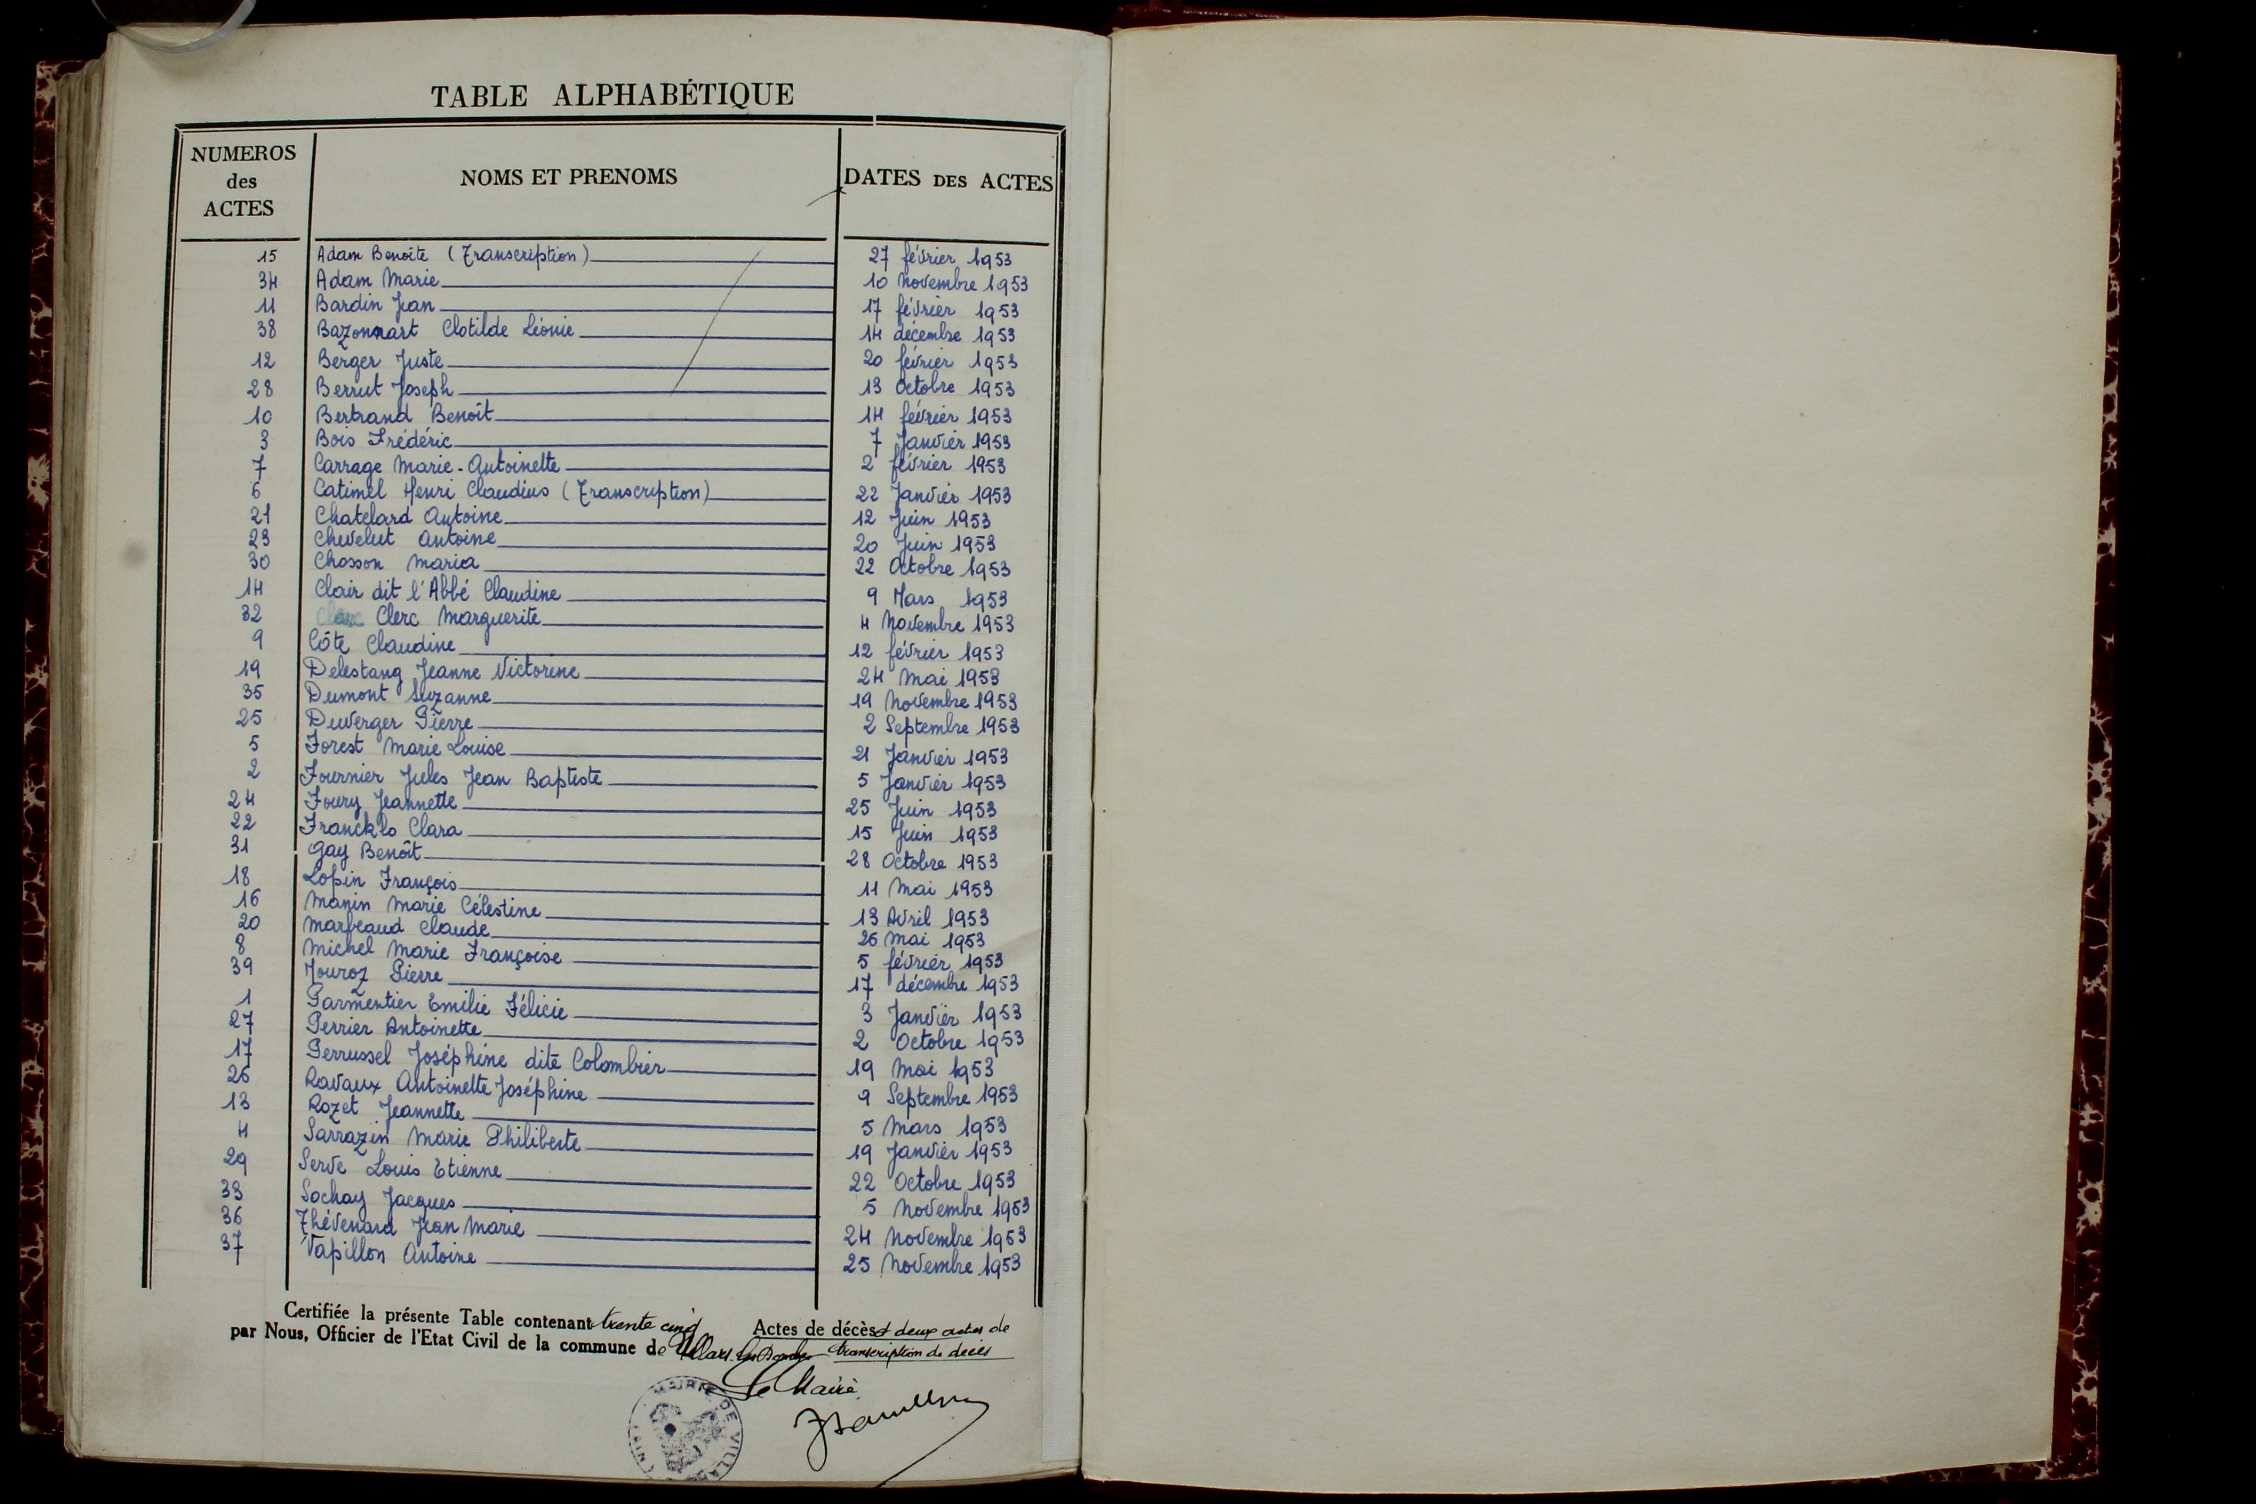 TABLE ALPHABÉTIQUE
NUMEROS des ACTES NOMS ET PRENOMS DATES DES ACTES
15 Adam Benoîte (Transcription) 27 février 1953
34 Adam Marie 10 Novembre 1953
11 Bardin Jean 17 février 1953
38 Bazonnart Clotilde Léonie 14 décembre 1953
12 Berger Juste 20 février 1953
28 Berrut Joseph 13 Octobre 1953
10 Bertrand Benoît 14 février 1953
3 Bois Frédéric 7 Janvier 1953
7 Carrage Marie-Antoinette 2 février 1953
6 Catimel Henri Claudius (Transcription) 22 Janvier 1953
21 Chatelard Antoine 12 Juin 1953
23 Chevelut Antoine 20 Juin 1953
30 Chosson Maria 22 Octobre 1953
14 Clair dit l'Abbé Claudine 9 Mars 1953
32 Clerc Marguerite 4 Novembre 1953
9 Côte Claudine 12 février 1953
19 Delestang Jeanne Victorine 24 Mai 1953
35 Dumont Suzanne 19 Novembre 1953
25 Duverger Pierre 2 Septembre 1953
5 Forest Marie Louise 21 Janvier 1953
2 Fournier Jules Jean Baptiste 5 Janvier 1953
24 Foury Jeannette 25 Juin 1953
22 Francklo Clara 15 Juin 1953
31 Gay Benoît 28 Octobre 1953
18 Lopin François 11 Mai 1953
16 Manin Marie Célestine 13 Avril 1953
20 Marpeaud Claude 26 Mai 1953
8 Michel Marie Françoise 5 février 1953
39 Mouroz Pierre 17 décembre 1953
1 Parmentier Emilie Félicie 3 Janvier 1953
27 Perrier Antoinette 2 Octobre 1953
17 Perrussel Joséphine dite Colombier 19 Mai 1953
26 Ravaux Antoinette Joséphine 9 Septembre 1953
13 Rozet Jeannette 5 Mars 1953
4 Sarrazin Marie Philiberte 19 Janvier 1953
29 Serve Louis Etienne 22 Octobre 1953
33 Sochay Jacques 5 Novembre 1953
36 Thévenard Jean Marie 24 Novembre 1953
37 Vapillon Antoine 25 Novembre 1953
Certifiée la présente Table contenant trente cinq Actes de décès et deux actes de
par Nous, Officier de l'Etat Civil de la commune de Villars les Dombes transcription de décès
Le Maire
MAIRIE DE VILLARS
(AIN)